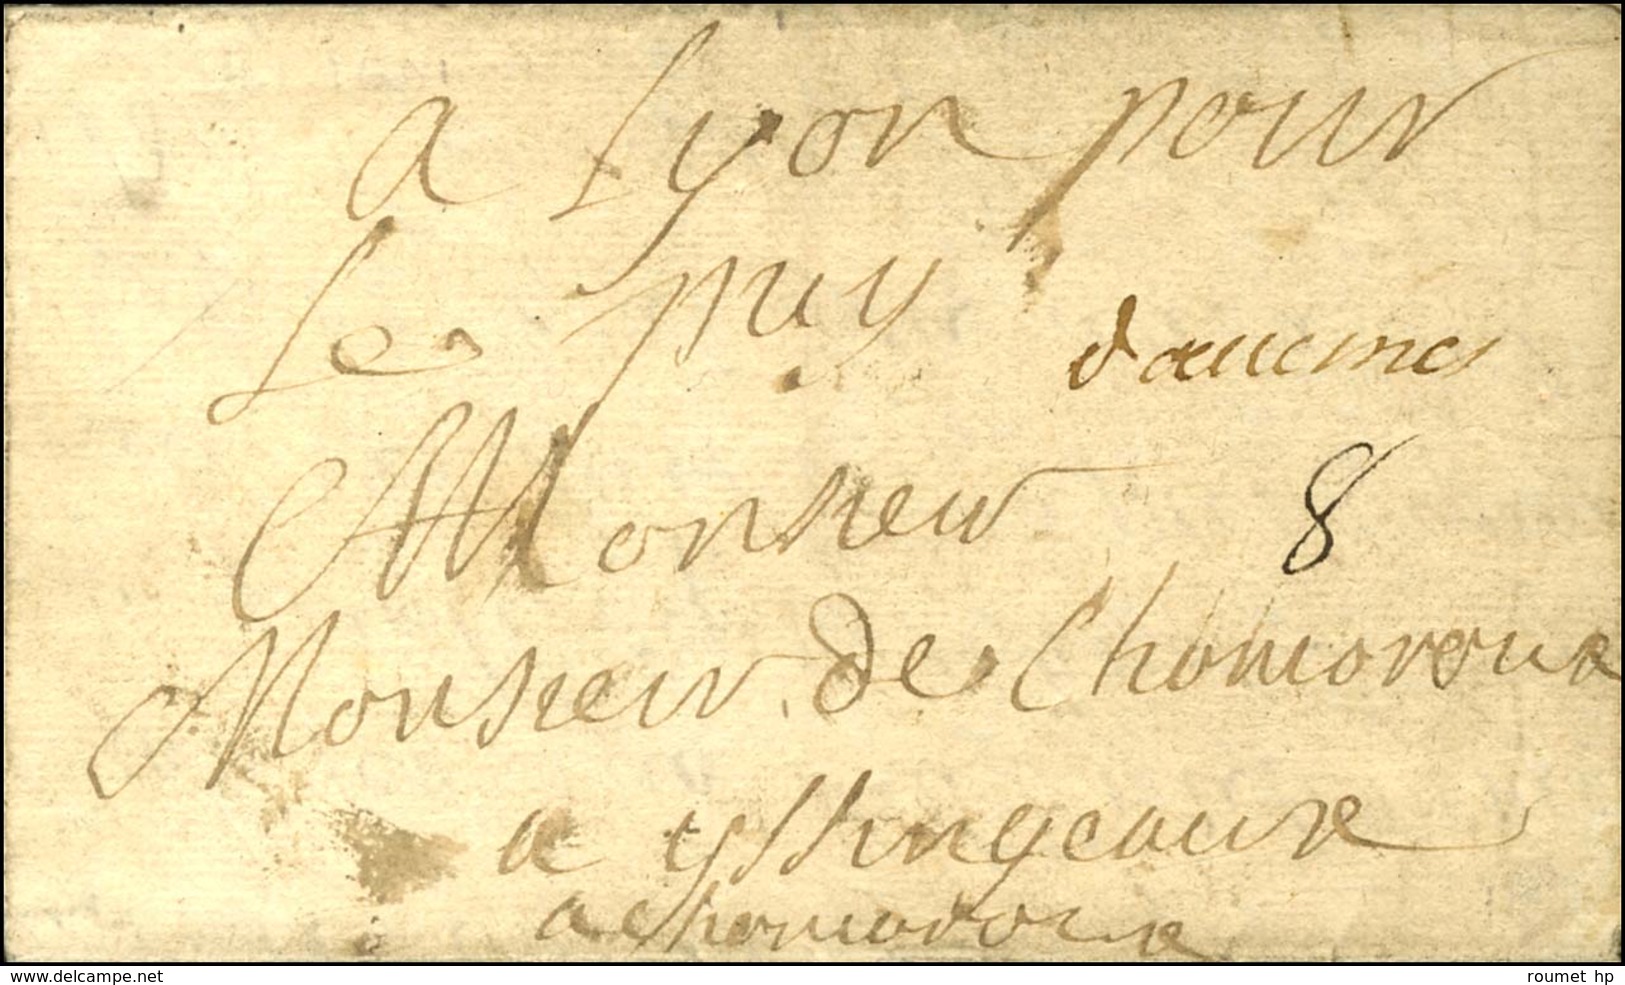 a Lyon pour
Le puy
davesnes
Monsieur
8
Monsieur de Chomoroux
a yssingeaux
a Chomoroux
delcampe.net
roumet hp